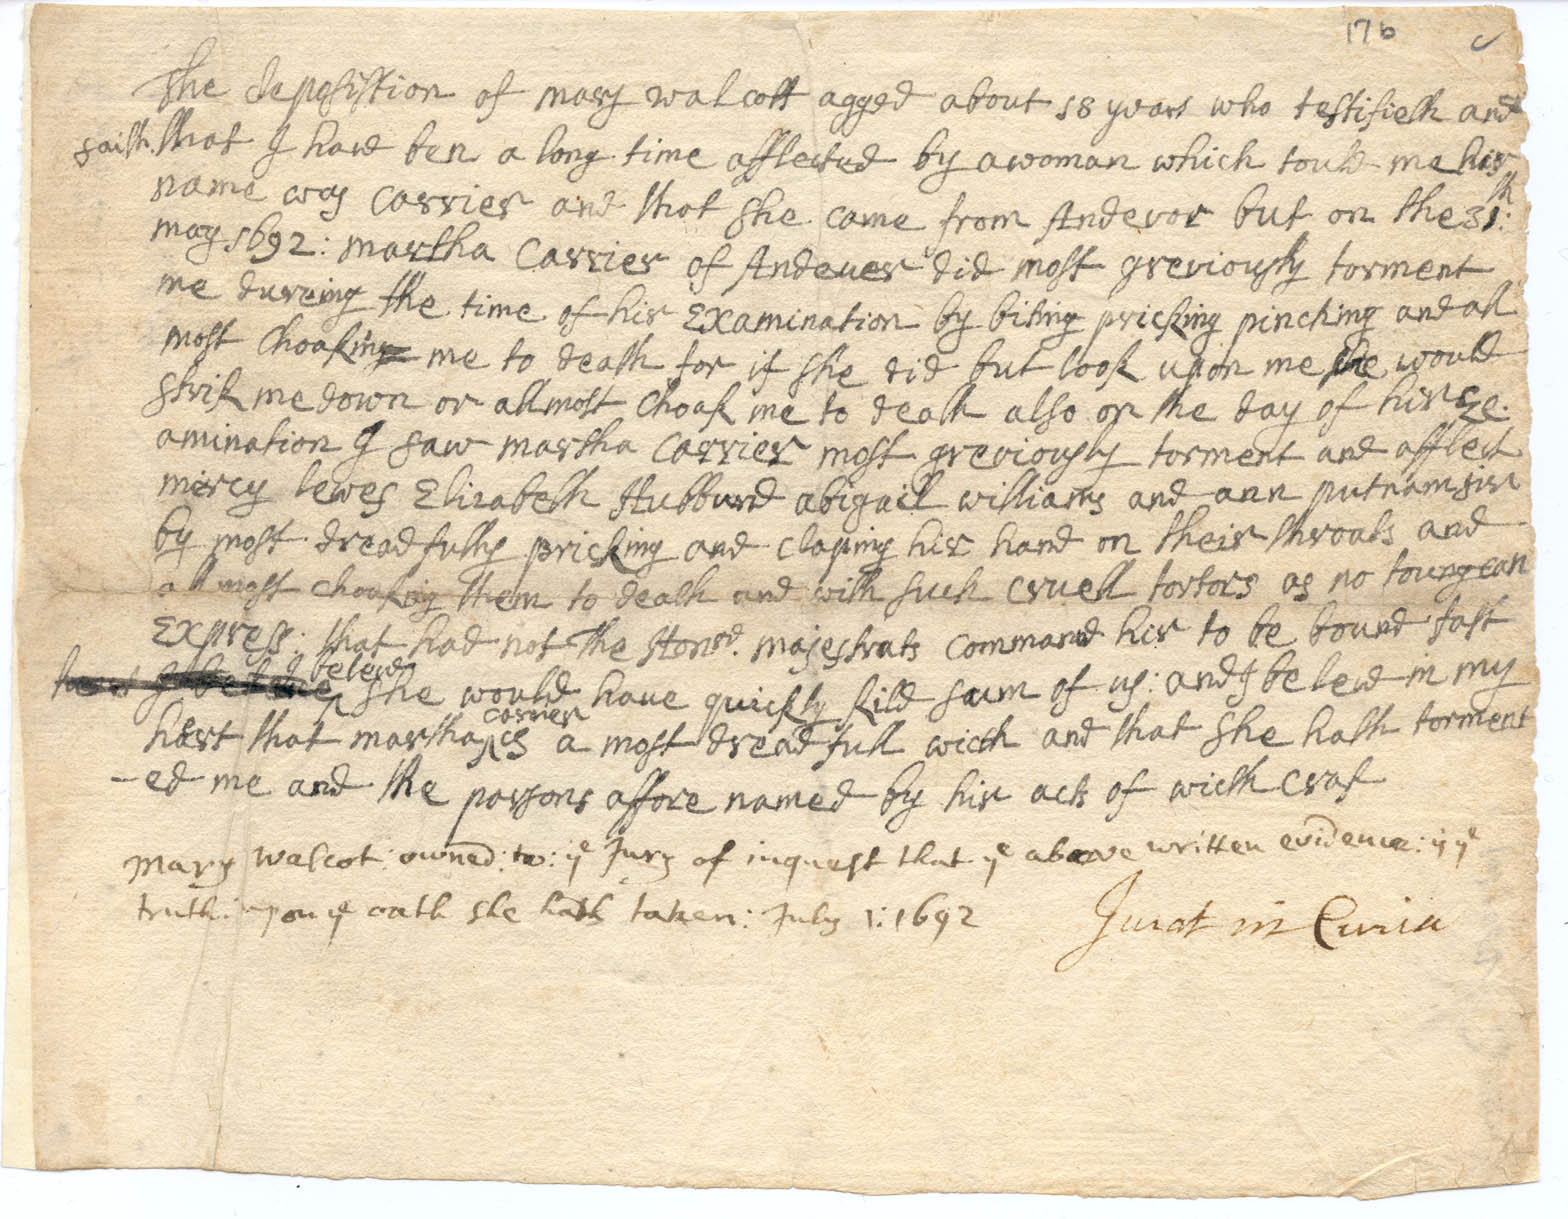 176
The deposistion of mary walcott agged about 18 years who testifieth and
saith. that I haved ben a long time afflected by a woman which tould me hir
name was Carrier and that she came from Andevor but on the 31th:
may 1692: martha Carrier of Andever did most greviously torment
me dureing the time of hir Examination by biting pricking pinching and al
most choaking me to death for if she did but look upon me she would
strik me down or allmost choak me to death also on the day of hir Ex-
amination I saw martha Carrier most greviously torment and afflect
mercy lewes Elizabeth Hubburd abigail williams and ann putnam jur
by most dreadfully pricking and claping hir hand on their throats and
allmost choaking them to death and with such cruell tortors as no toung can
Express: that had not the Honrd. majestrats command hir to be bound fast
beleve
she would have quickly kild sum of us: and I beleve in my
carrier
hart that martha is a most dreadfull wicth and that she hath torment
-ed me and the parsons affore named by hir acts of wicth craf
mary walcot: owned: to: ye Jury of inquest that ye above written evidence: is ye
truth: upon ye oath she hath taken: July 1: 1692
Jurat in Curia